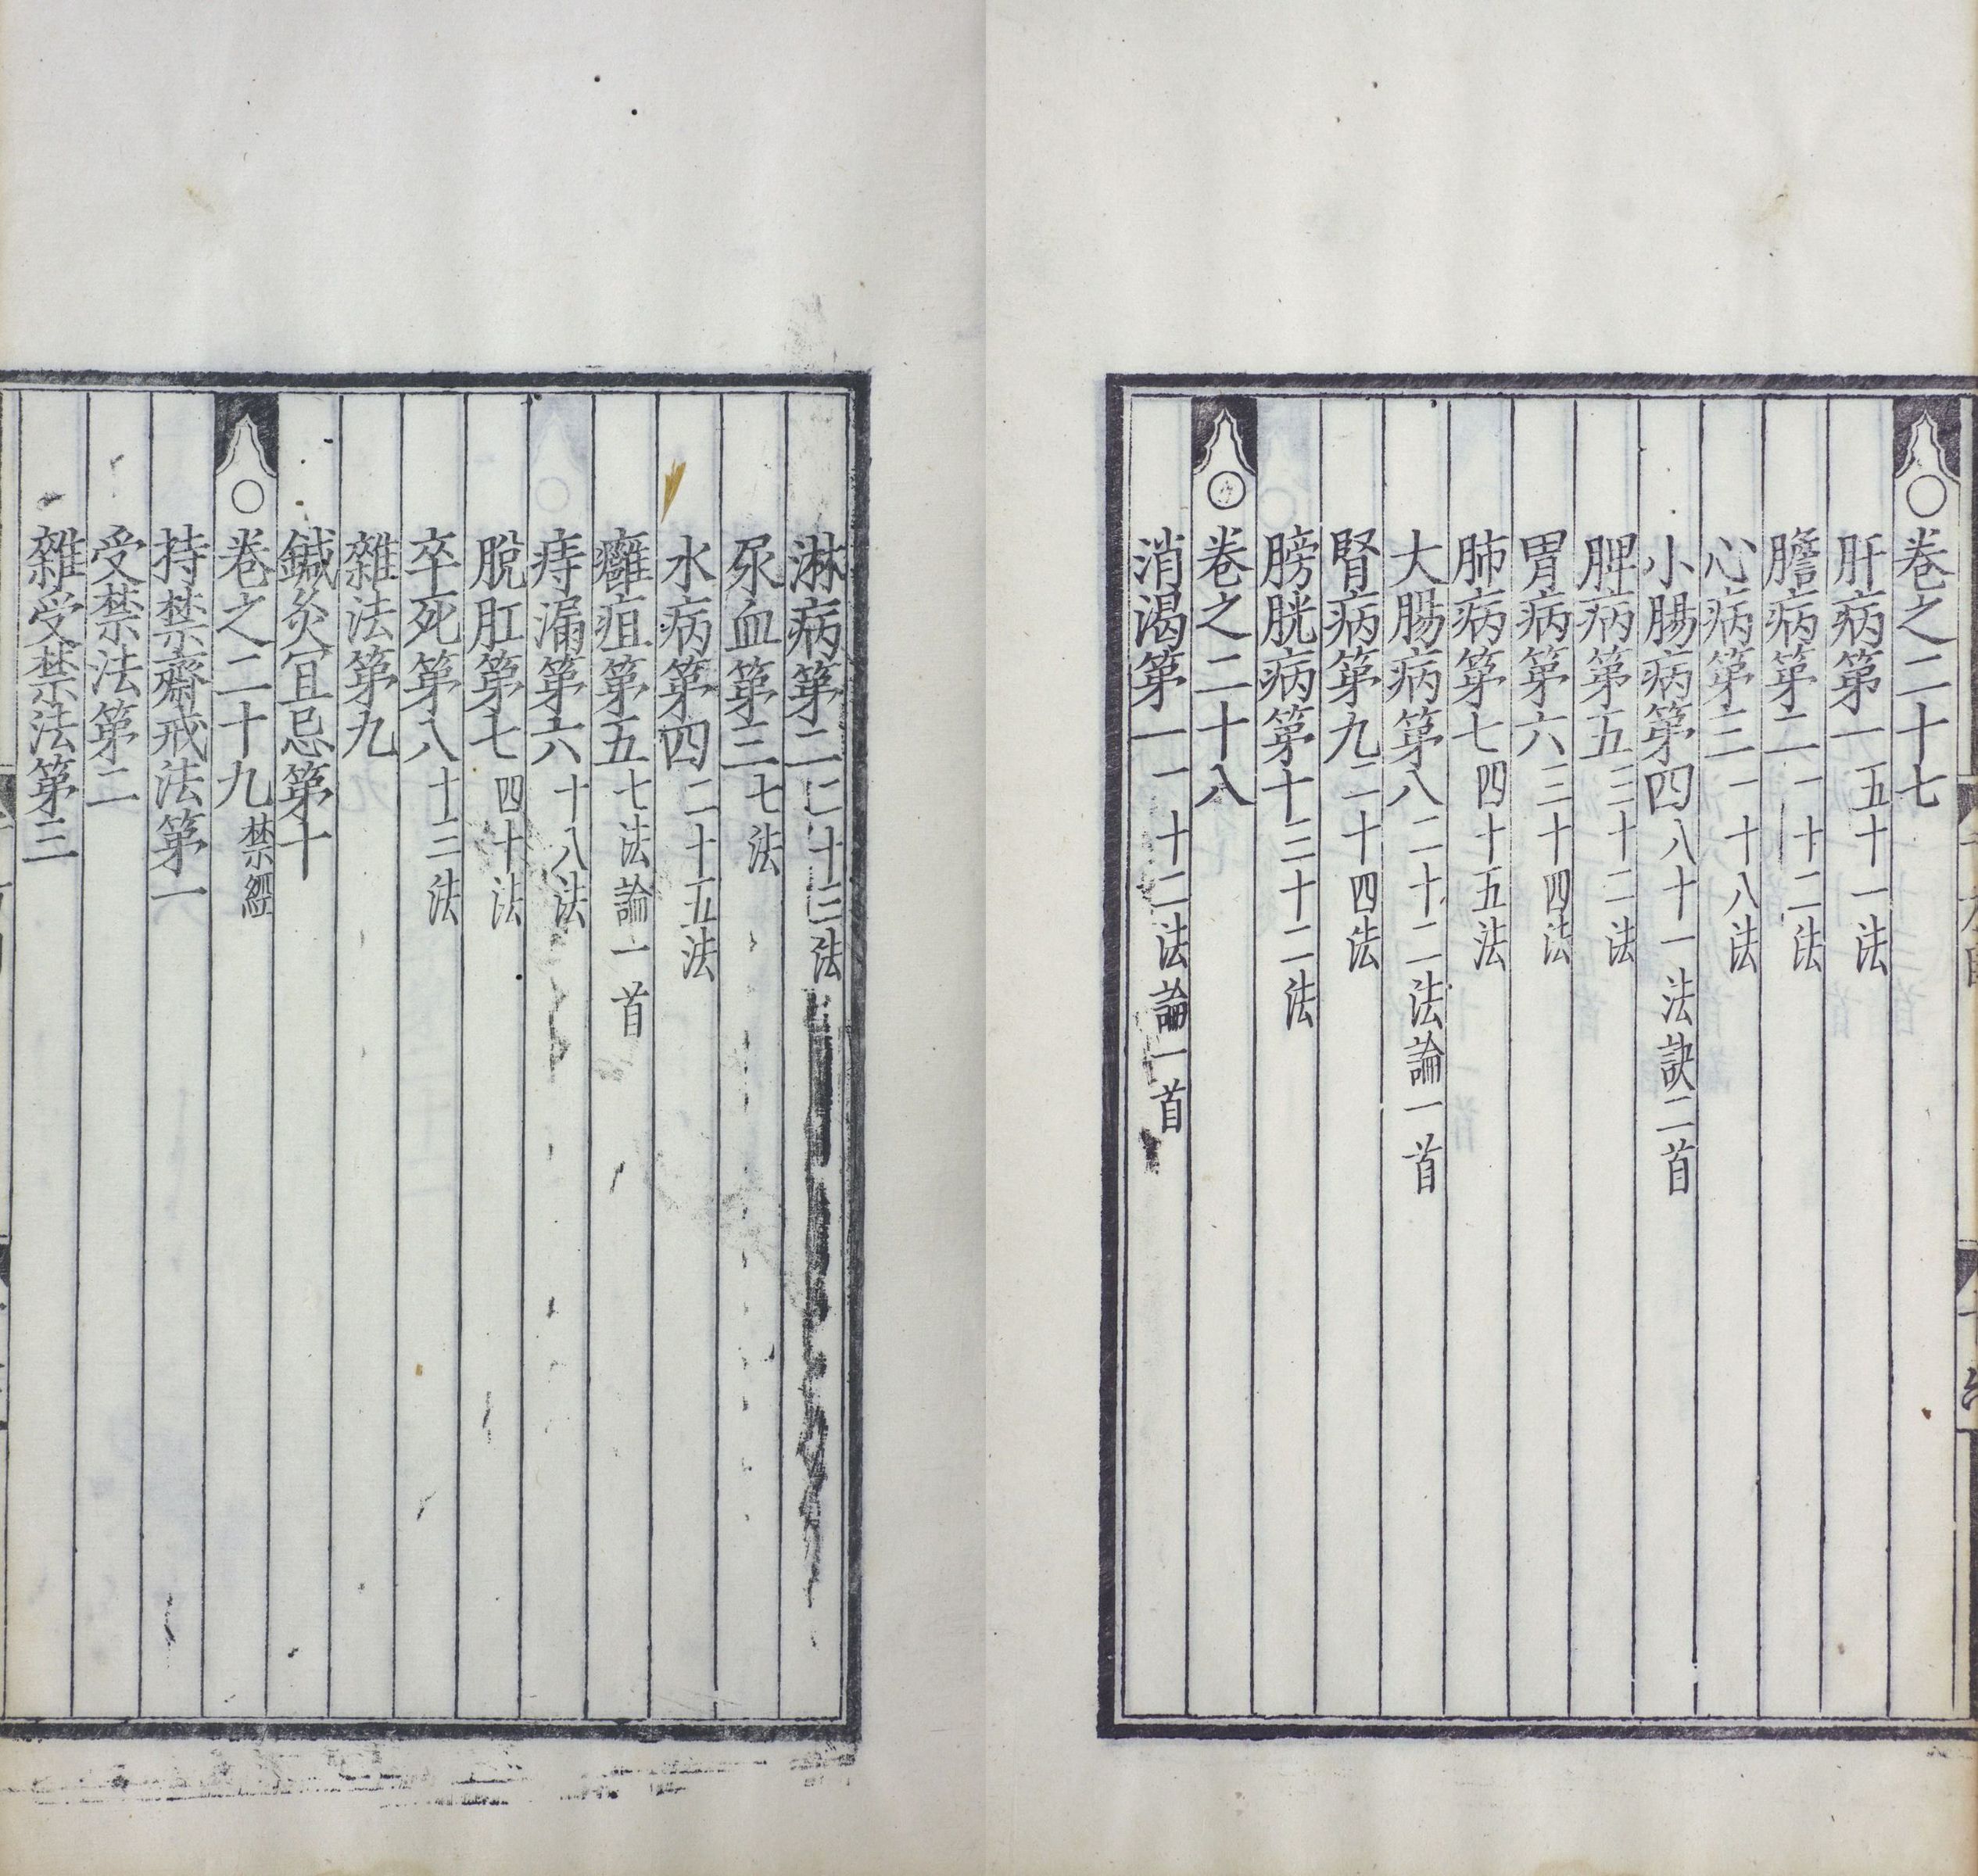 ○卷之二十七
肝病第一五十一法
膽病第二一十二法
心病第三一十八法
小腸病第四八十一法訣二首
脾病第五三十二法
胃病第六三十四法
肺病第七四十五法
大腸病第八二十二法論一首
腎病第九二十四法
膀胱病第十三十二法
○卷之二十八
消渴第一一十二法論一首
淋病第二二十三法
尿血第三七法
水病第四二十五法
癰疽第五七法論一首
痔漏第六十八法
脫肛第七四十法
卒死第八十三法
雜法第九
鍼灸宜忌第十
○卷之二十九禁經
持禁齋戒法第一
受禁法第二
雜受禁法第三